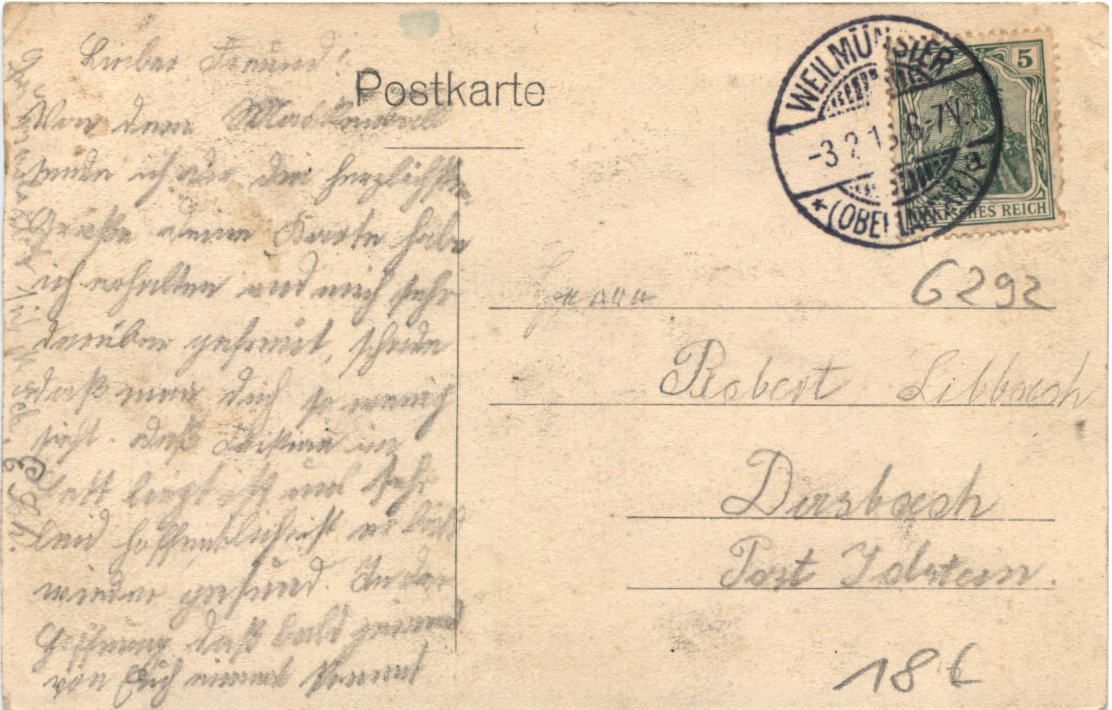 Postkarte
Lieber Freund!
Von dem Maskenball
sende ich dir die herzlichsten
Grüße deine Karte habe
ich erhalten und mich sehr
darüber gefreut, schade
daß man dich so wenig
sieht. daß im
Bett liegt uns sehr
Leid hoffentlich ist er bald
wieder gesund. In der
Hoffnung daß bald jemand
von Euch einmal kommt
WEILMÜNSTER
-3.2.13.6-7V.
* (OBERLAHNKR.) a
5
DEUTSCHES REICH
6292
Herrn
Robert Libbach
Dasbach
Post Idstein.
18 €